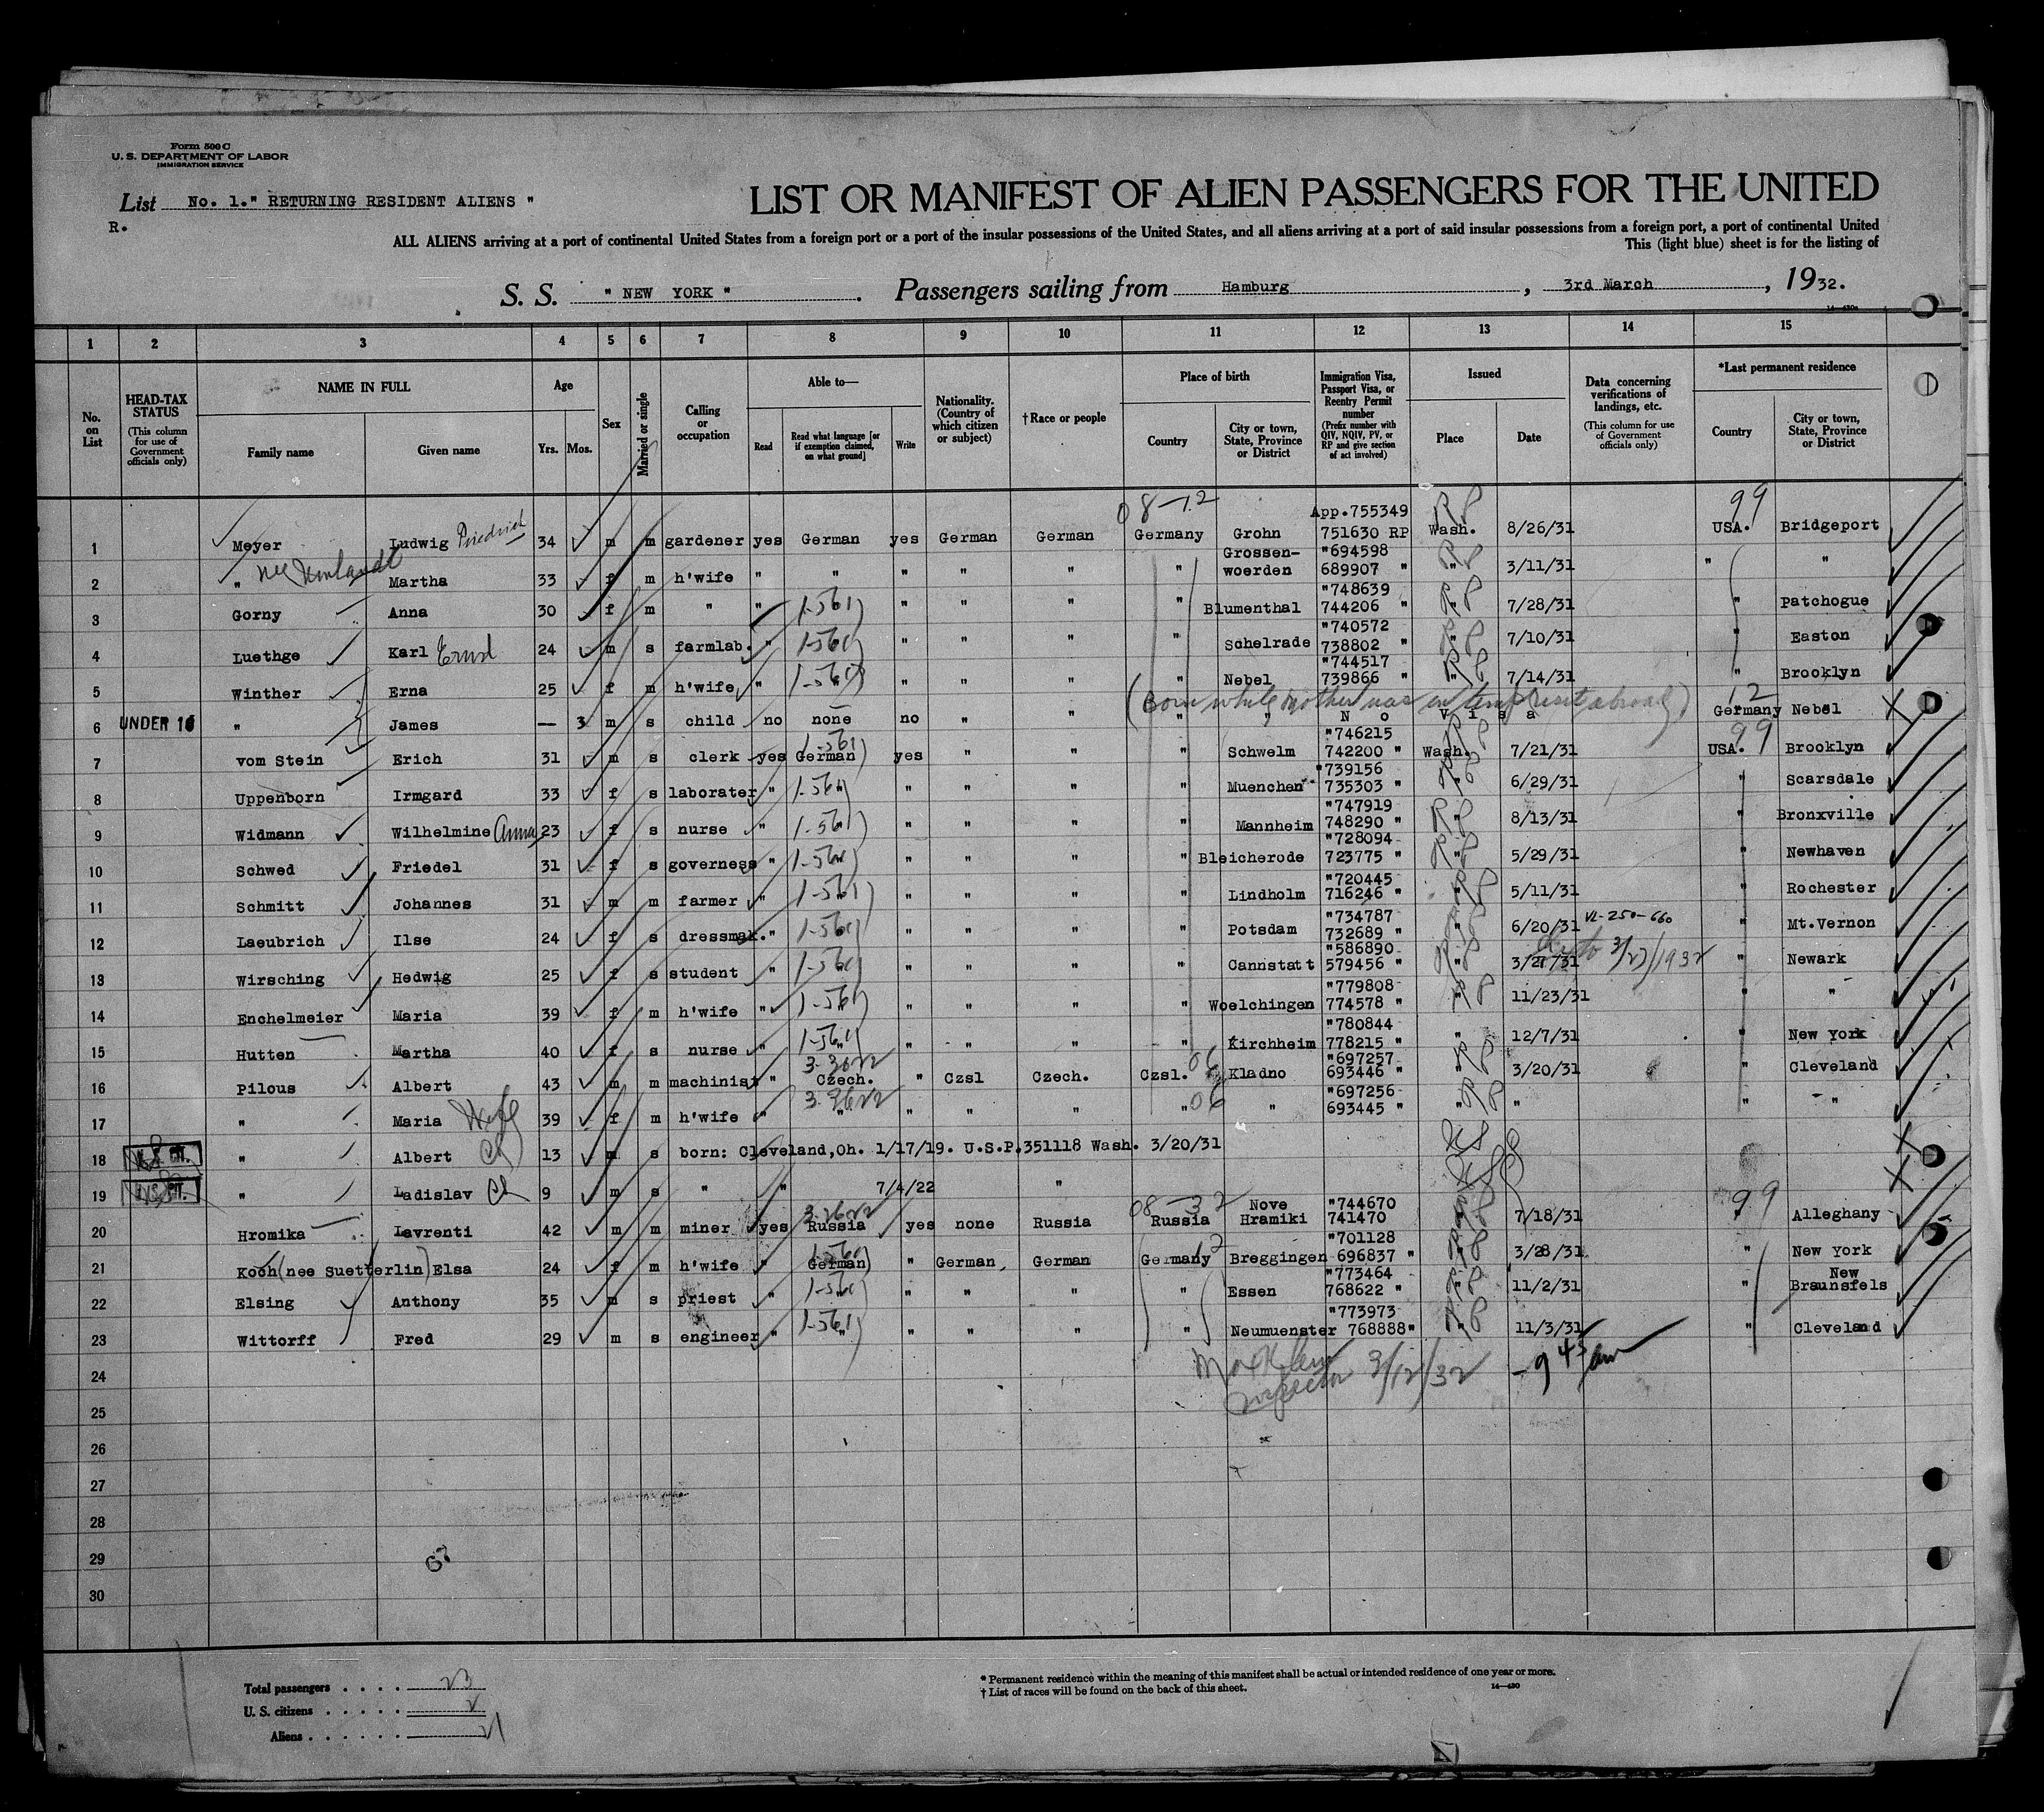 Form 500 C
U. S. DEPARTMENT OF LABOR
IMMIGRATION SERVICE
List No. 1." RETURNING RESIDENT ALIENS "
R.
LIST OR MANIFEST OF ALIEN PASSENGERS FOR THE UNITED
ALL ALIENS arriving at a port of continental United States from a foreign port or a port of the insular possessions of the United States, and all aliens arriving at a port of said insular possessions from a foreign port, a port of continental United
This (light blue) sheet is for the listing of
S. S. " NEW YORK " . Passengers sailing from Hamburg , 3rd March , 1932.
14—430a
1 2 3 4 5 6 7 8 9 10 11 12 13 14 15
No. on List
HEAD-TAX STATUS (This column for use of Government officials only)
NAME IN FULL
Family name Given name
Age
Yrs. Mos.
Sex
Married or single
Calling or occupation
Able to—
Read Read what language [or if exemption claimed, on what ground] Write
Nationality. (Country of which citizen or subject)
† Race or people
Place of birth
Country City or town, State, Province or District
Immigration Visa, Passport Visa, or Reentry Permit number (Prefix number with QIV, NQIV, PV, or RP and give section of act involved)
Issued
Place Date
Data concerning verifications of landings, etc. (This column for use of Government officials only)
*Last permanent residence
Country City or town, State, Province or District
08-12 App.755349 RP 99
1 Meyer Ludwig Friedrich 34 m m gardener yes German yes German German Germany Grohn 751630 RP Wash. 8/26/31 USA. Bridgeport
Grossen- "694598
2 " nee Martha 33 f m h'wife " " " " " " woerden 689907 " " 3/11/31 " "
"748639
3 Gorny Anna 30 f m " " 1-561 " " " " Blumenthal 744206 " " 7/28/31 " Patchogue
"740572
4 Luethge Karl Ernst 24 m s farmlab. " 1-561 " " " " Schelrade 738802 " " 7/10/31 " Easton
"744517
5 Winther Erna 25 f m h'wife " 1-561 " " " " Nebel 739866 " " 7/14/31 " Brooklyn
(Born while mother was on temp visit abroad) 12
6 UNDER 16 " James — 3 m s child no none no " " " " No Visa Germany Nebel
"746215 99
7 vom Stein Erich 31 m s clerk yes 1-561 German yes " " " Schwelm 742200 " Wash. 7/21/31 USA. Brooklyn
"739156
8 Uppenborn Irmgard 33 f s laborater " 1-561 " " " " Muenchen 735303 " " 6/29/31 " Scarsdale
"747919
9 Widmann Wilhelmine Anna 23 f s nurse " 1-561 " " " " Mannheim 748290 " " 8/13/31 " Bronxville
"728094
10 Schwed Friedel 31 f s governess " 1-561 " " " " Bleicherode 723775 " " 5/29/31 " Newhaven
"720445
11 Schmitt Johannes 31 m m farmer " 1-561 " " " " Lindholm 716246 " " 5/11/31 " Rochester
"734787
12 Laeubrich Ilse 24 f s dressmak. " 1-561 " " " " Potsdam 732689 " " 6/20/31 VL-250-660 " Mt.Vernon
"586890
13 Wirsching Hedwig 25 f s student " 1-561 " " " " Cannstatt 579456 " " 3/27/31 to 3/27/1932 " Newark
"779808
14 Enchelmeier Maria 39 f m h'wife " 1-561 " " " " Woelchingen 774578 " " 11/23/31 " "
"780844
15 Hutten Martha 40 f s nurse " 1-561 " " " " Kirchheim 778215 " " 12/7/31 " New York
3-2622 06 "697257
16 Pilous Albert 43 m m machinist " Czech. " Czsl Czech. Czsl. Kladno 693446 " " 3/20/31 " Cleveland
3-2622 06 "697256
17 " Maria Wife 39 f m h'wife " " " " " " " 693445 " " " " "
18 U.S. CIT. " Albert Ch 13 m s born: Cleveland,Oh. 1/17/19. U.S.P.351118 Wash. 3/20/31
19 U.S. CIT. " Ladislav Ch 9 m s " " 7/4/22 "
3-2622 08-32 Nove "744670 99
20 Hromika Lavrenti 42 m m miner yes Russia yes none Russia Russia Hramiki 741470 " 7/18/31 Alleghany
1-561 12 "701128
21 Koch(nee Suetterlin) Elsa 24 f m h'wife " German " German German Germany Breggingen 696837 " " 3/28/31 " New York
"773464 New
22 Elsing Anthony 35 m s priest " 1-561 " " " " Essen 768622 " " 11/2/31 " Braunsfels
"773973
23 Wittorff Fred 29 m s engineer " 1-561 " " " " Neumuenster 768888" " 11/3/31 " Cleveland
24 Inspector 3/12/32 - 9 45 am
25
26
27
28
29
30
Total passengers . . . . 23
U. S. citizens . . . . . 2
Aliens . . . . . . 21
* Permanent residence within the meaning of this manifest shall be actual or intended residence of one year or more.
† List of races will be found on the back of this sheet.
14—430